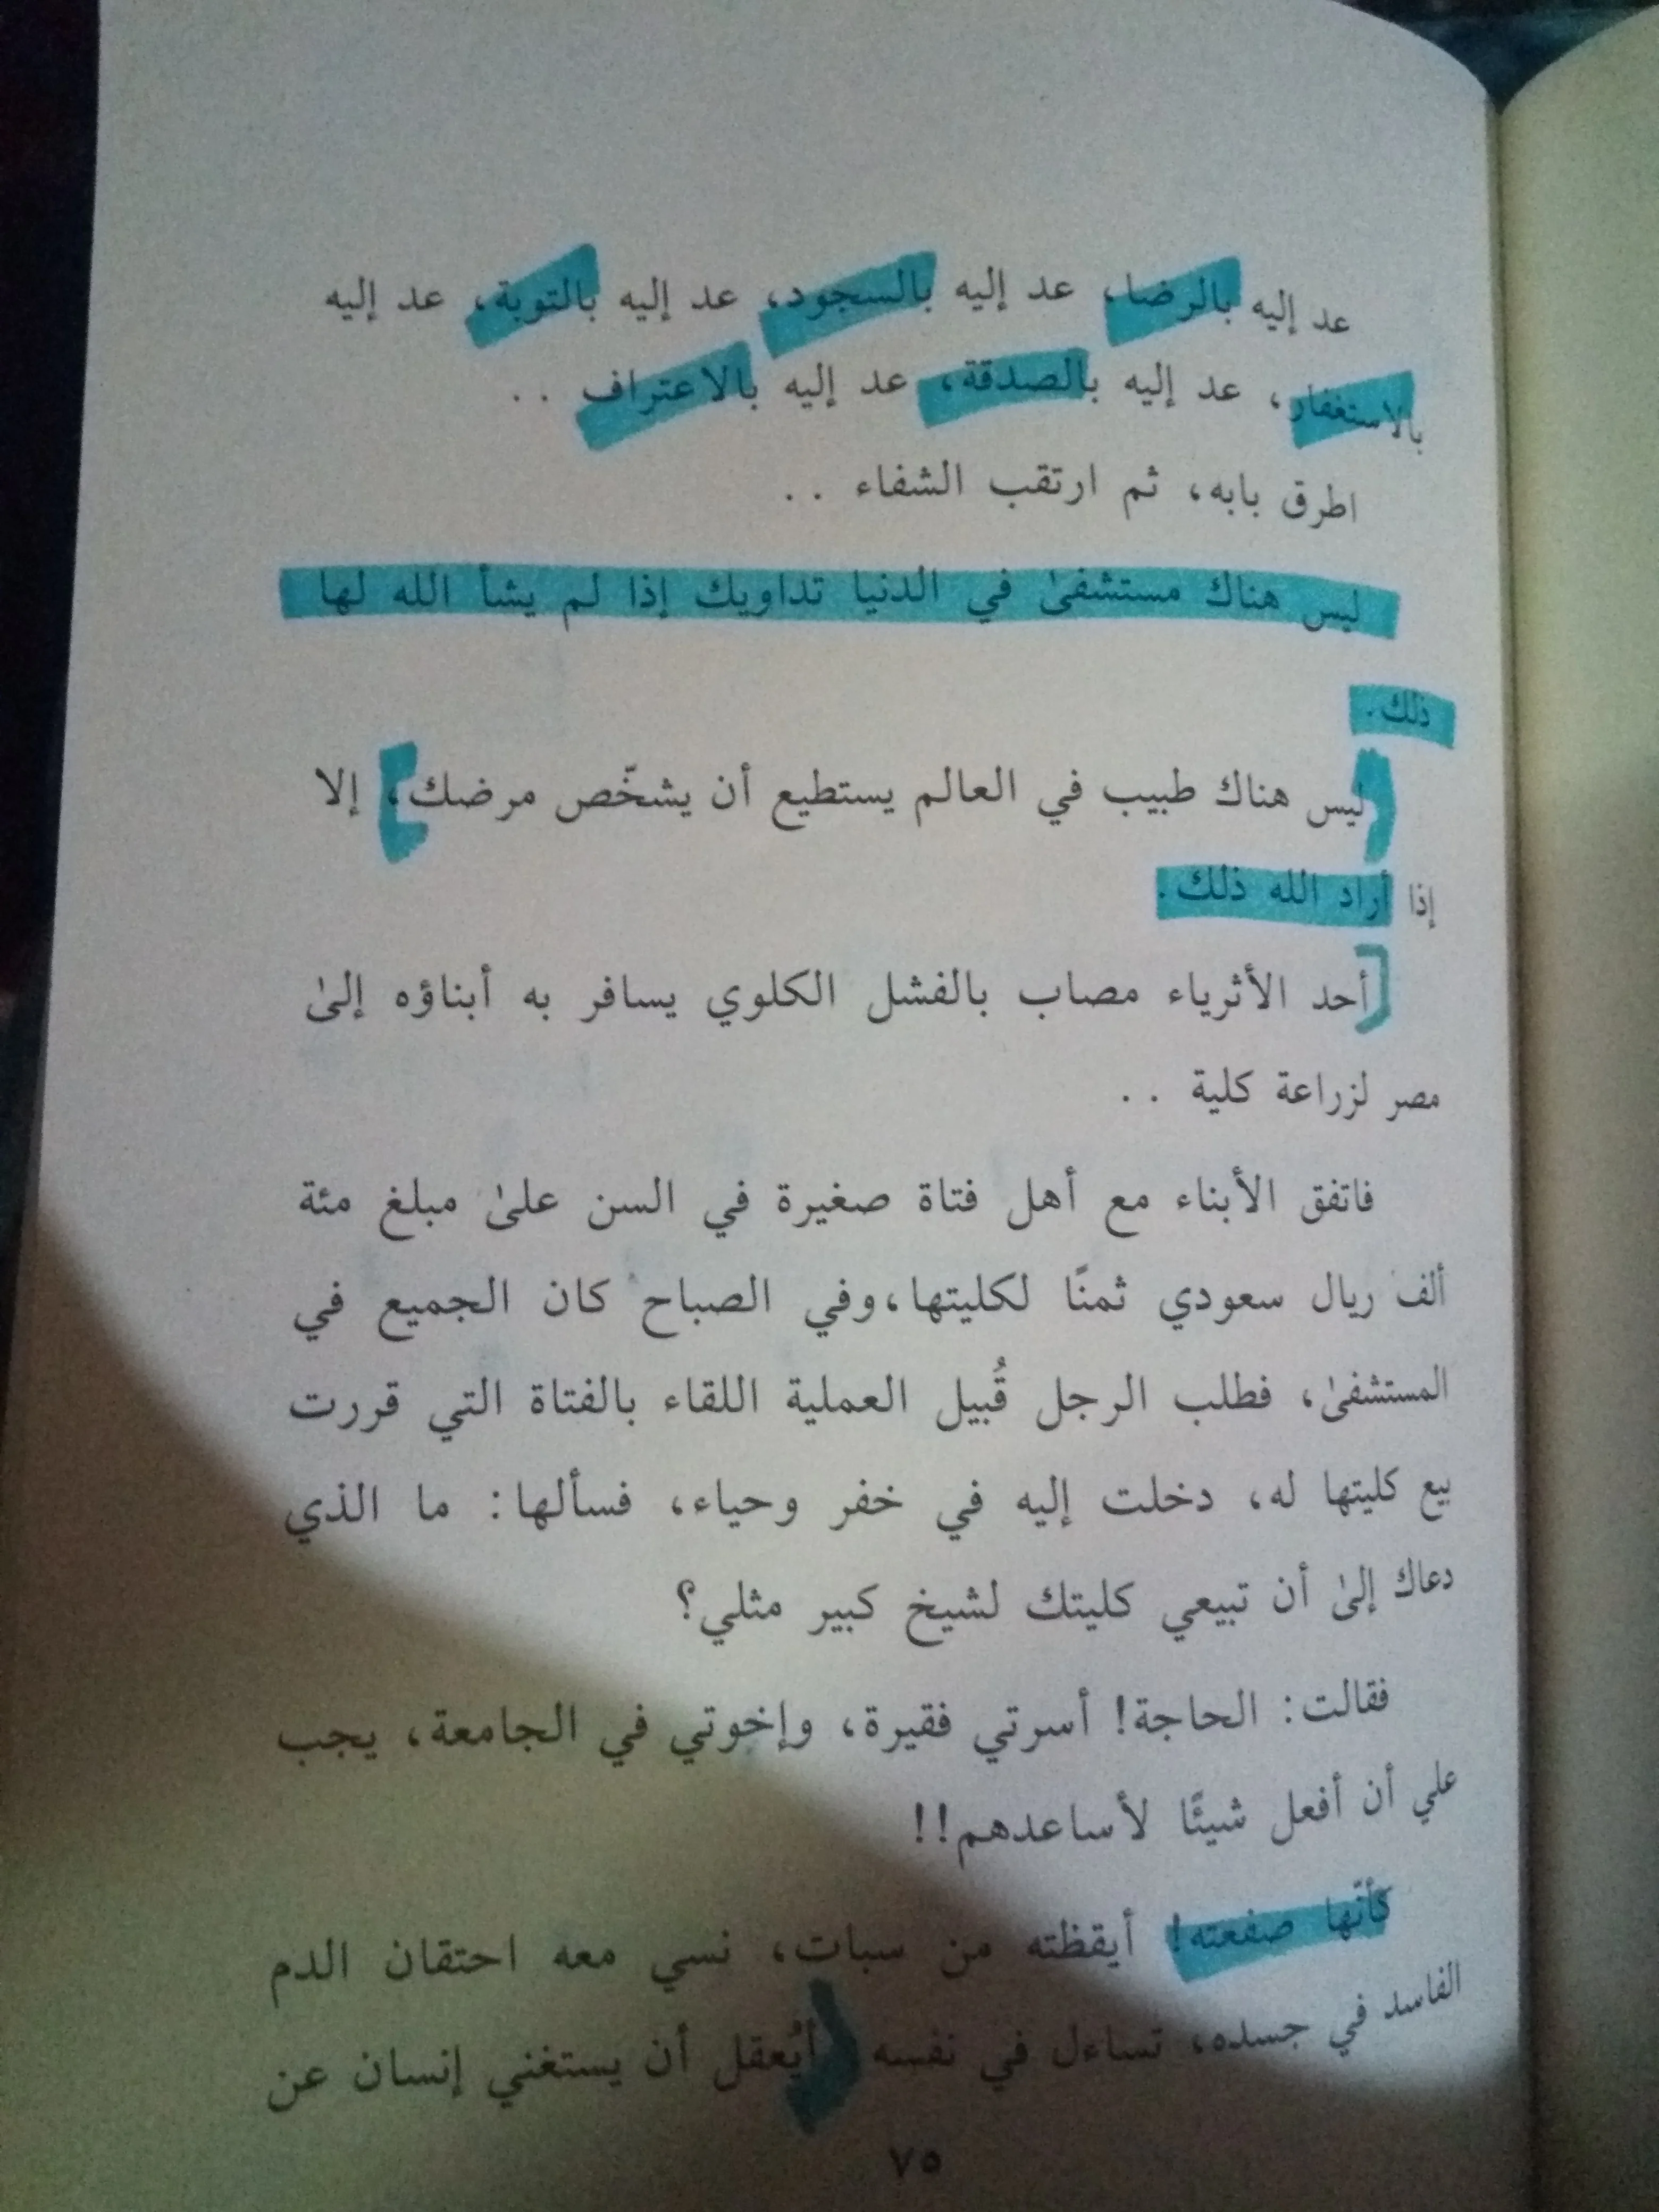 عد إليه بالرضا، عد إليه بالسجود، عد إليه بالتوبة، عد إليه
بالاستغفار، عد إليه بالصدقة، عد إليه بالاعتراف . .
اطرق بابه، ثم ارتقب الشفاء . .
ليس هناك مستشفىٰ في الدنيا تداويك إذا لم يشأ الله لها
ذلك.
ليس هناك طبيب في العالم يستطيع أن يشخّص مرضك، إلا
إذا أراد الله ذلك.
أحد الأثرياء مصاب بالفشل الكلوي يسافر به أبناؤه إلىٰ
مصر لزراعة كلية . .
فاتفق الأبناء مع أهل فتاة صغيرة في السن علىٰ مبلغ مئة
ألف ريال سعودي ثمنًا لكليتها، وفي الصباح كان الجميع في
المستشفىٰ، فطلب الرجل قُبيل العملية اللقاء بالفتاة التي قررت
بيع كليتها له، دخلت إليه في خفر وحياء، فسألها: ما الذي
دعاك إلىٰ أن تبيعي كليتك لشيخ كبير مثلي؟
فقالت: الحاجة! أسرتي فقيرة، وإخوتي في الجامعة، يجب
علي أن أفعل شيئًا لأساعدهم!!
كأنّها صفعته! أيقظته من سبات، نسي معه احتقان الدم
الفاسد في جسده، تساءل في نفسه أيُعقل أن يستغني إنسان عن
٧٥